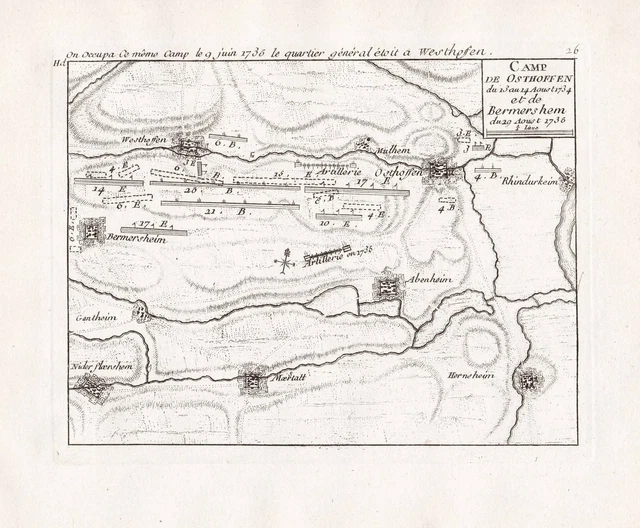 On Occupa Ce même Camp le 9 juin 1735 le quartier général étoit a Westhofen.
26
CAMP
DE OSTHOFFEN
du 13 au 14 Aoust 1734
et de
Bermershem
du 29 Aoust 1735
Westhoffen
6. B.
Mulhem
3. E
3 E
Artillerie
Osthoffen
4. B.
Rhindurkeim
4 E
6.
18.
E
14 E
20 B
17 E
6. E
21. B
6. B
4. E
4 B
10. E
17 E
Bermersheim
Artillerie en 1735
Abenheim
Guntheim
Nider flersheim
Mærtatt
Hernsheim